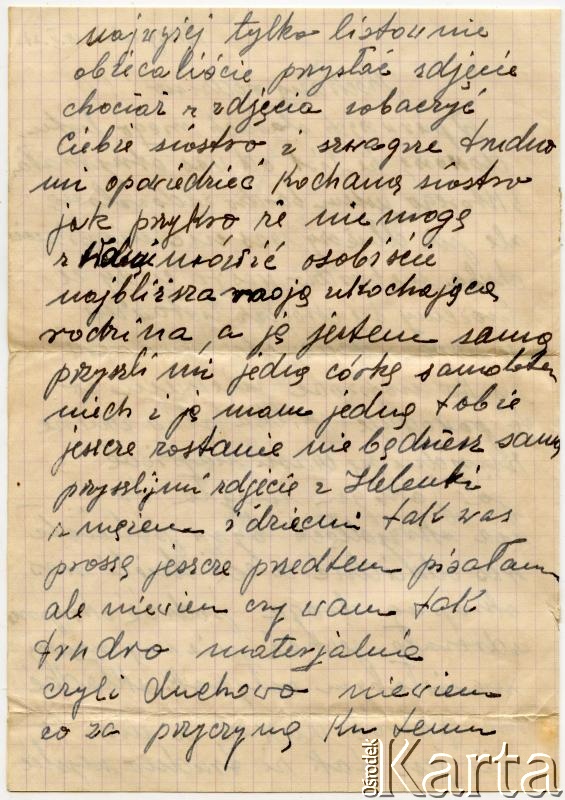 najwyżej tylko listownie
obiecaliście przysłać zdjęcie
chociaż z zdjęcia zobaczyć
Ciebie siostro i szwagre trudno
mi opowiedzieć Kochaną siostro
jak przykro że nie mogę
z mówić osobiście
najbliższa moją ukochającą
rodzina, a ją jestem samą
przyszli mi jedną córkę samolotem
niech i ją mam jedną tobie
jeszcze zostanie nie będziesz samą
przyszlijmi zdjęcie z Helenki
z mężem i dziećmi tak was
proszę jeszcze przedtem pisałam
ale niewiem czy wam tak
trudno materjalnie
czyli duchowo niewiem
co za przyczyną Ku temu
Ośrodek Karta